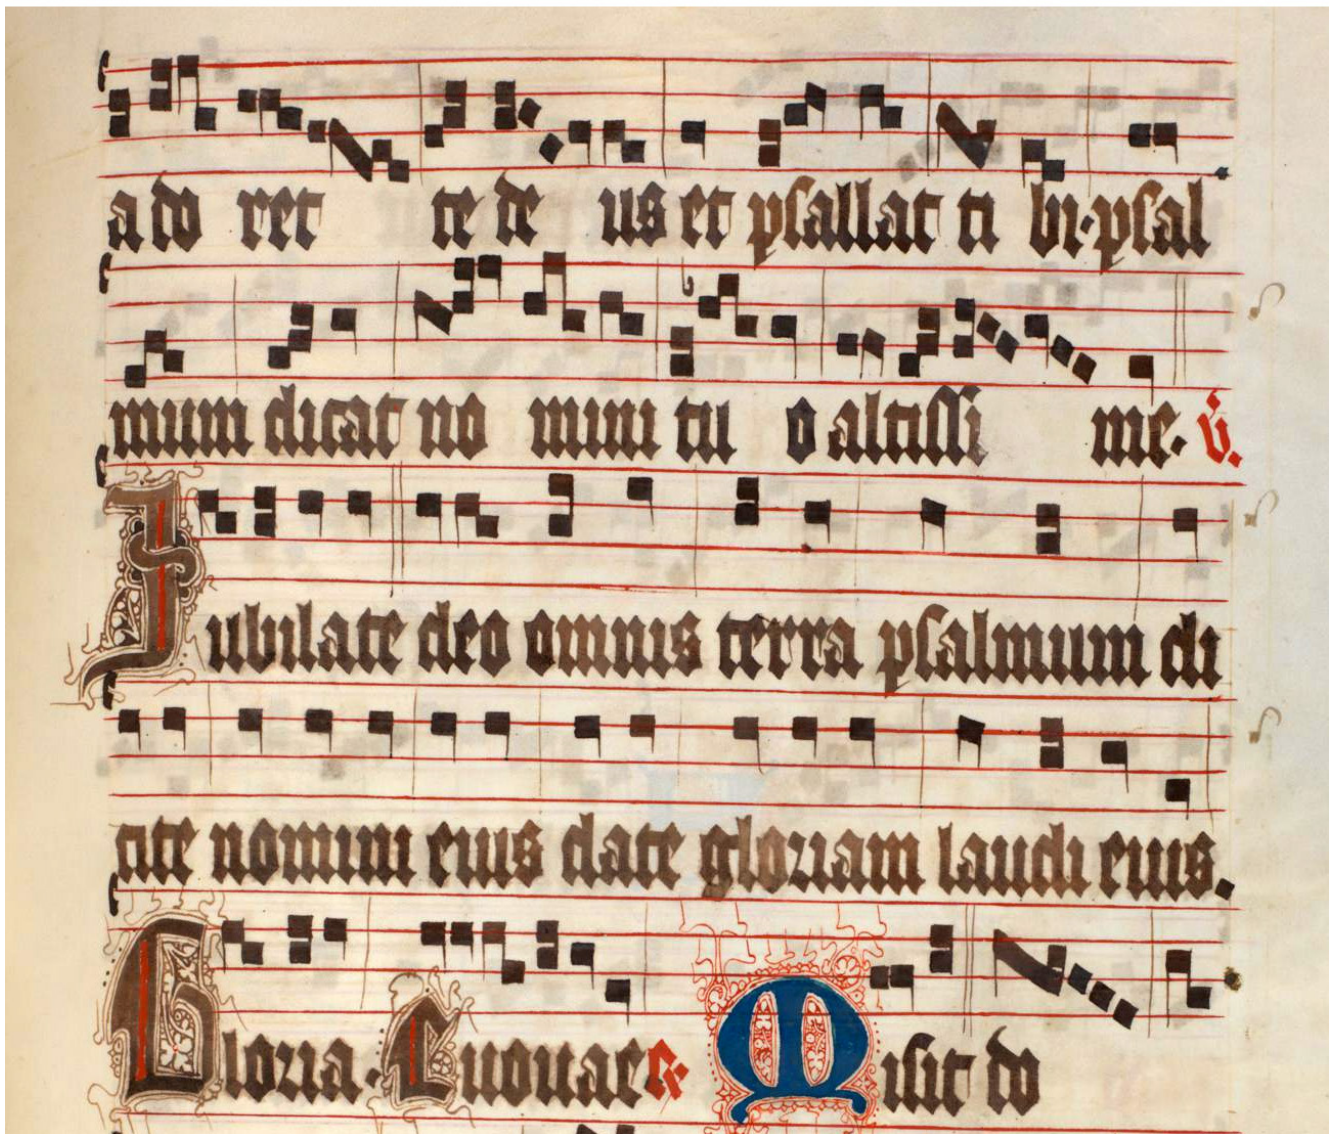 ado ret te de us et psallat ti bi·psal
mum dicat no mini tu o altissi me· v̇.
Jubilate deo omnis terra psalmum di
cite nomini eius date gloriam laudi eius.
Gloria· Euouae R· Misit do